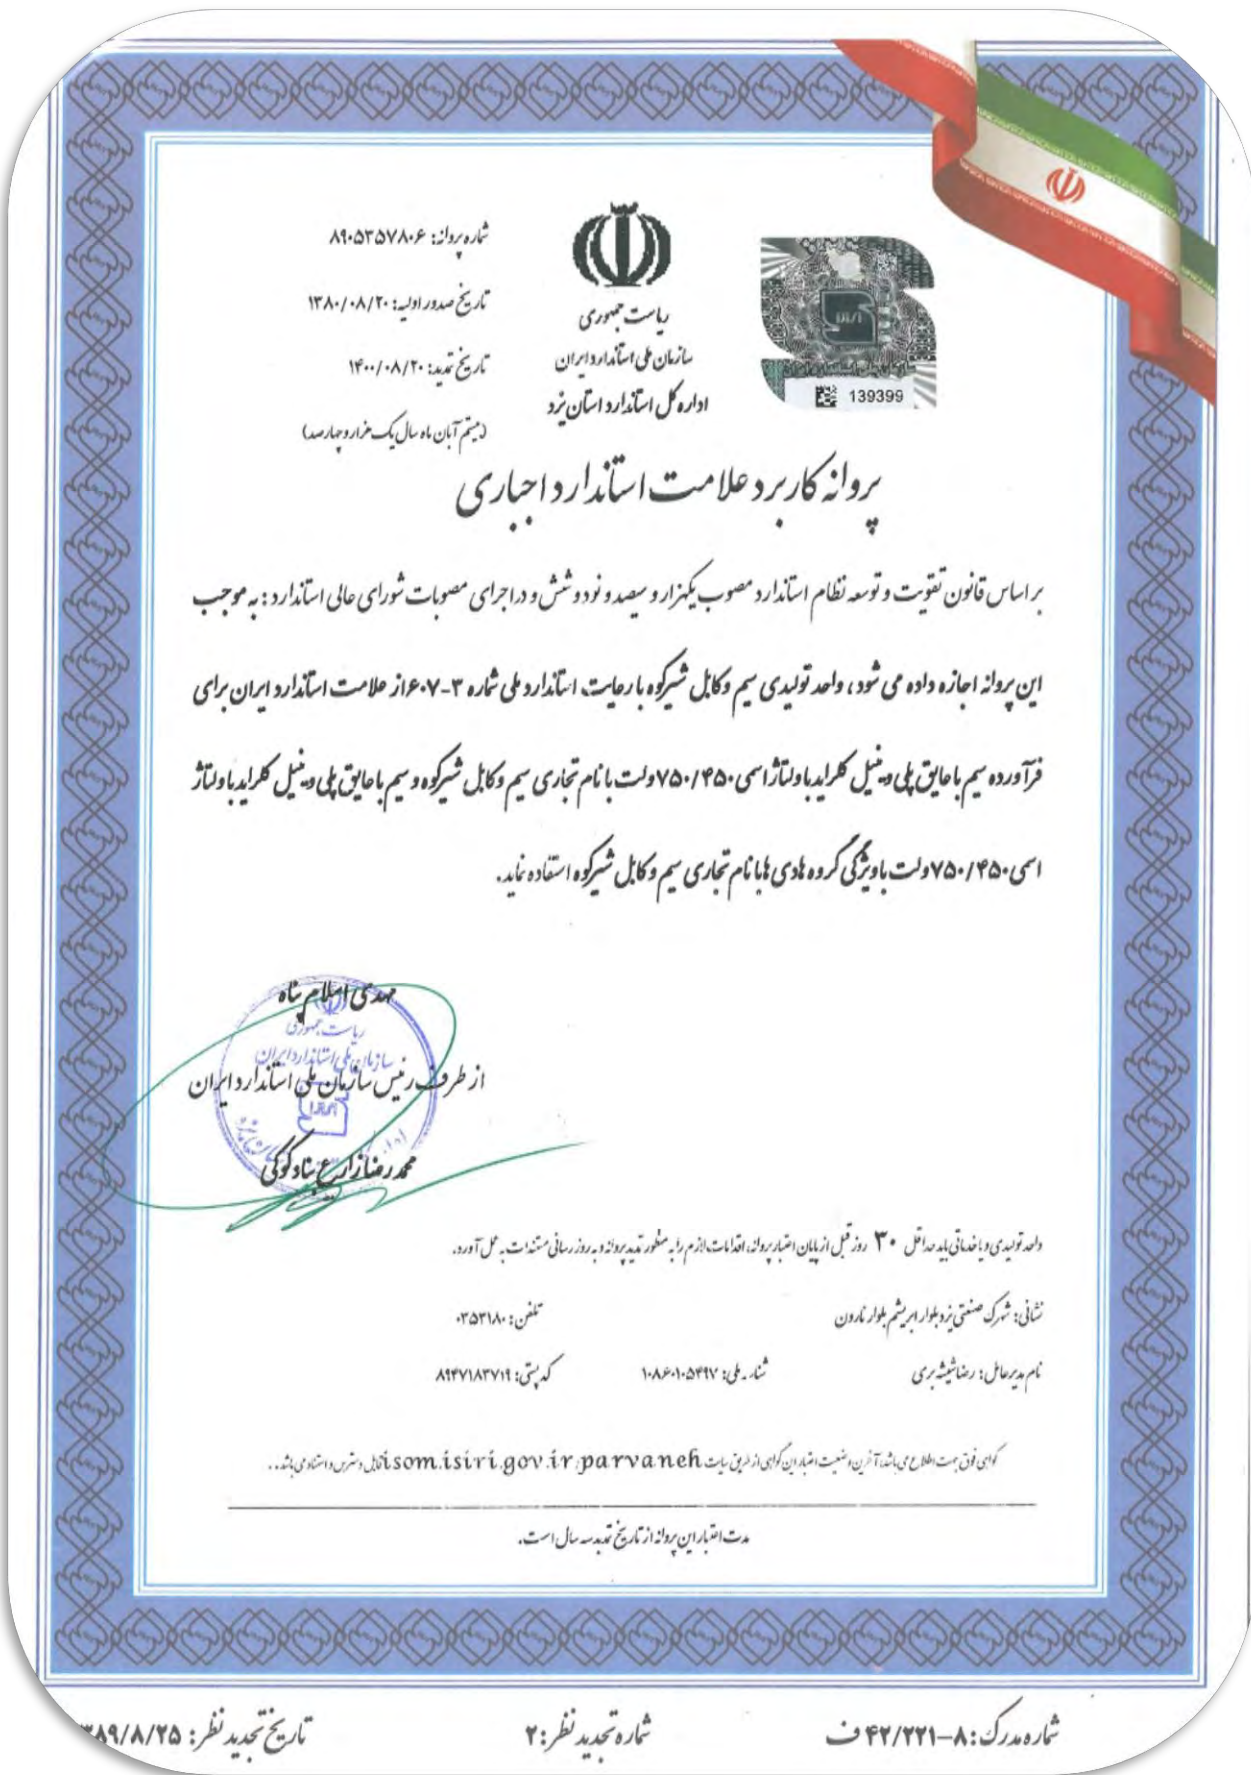 شماره پروانه: ۸۹۰۵۳۵۷۸۰۶
تاریخ صدور اولیه: ۱۳۸۰/۰۸/۲۰
تاریخ تمدید: ۱۴۰۰/۰۸/۲۰
(بیستم آبان ماه سال یک هزار و چهارصد)
ریاست جمهوری
سازمان ملی استاندارد ایران
اداره کل استاندارد استان یزد
139399
پروانه کاربرد علامت استاندارد اجباری
بر اساس قانون تقویت و توسعه نظام استاندارد مصوب یکهزار و سیصد و نود و شش و در اجرای مصوبات شورای عالی استاندارد : به موجب
این پروانه اجازه داده می شود ، واحد تولیدی سیم و کابل شیرکوه با رعایت استاندارد ملی شماره ۳-۶۰۷ از علامت استاندارد ایران برای
فرآورده سیم با عایق پلی وینیل کلراید با ولتاژ اسمی ۷۵۰/۴۵۰ ولت با نام تجاری سیم و کابل شیرکوه و سیم با عایق پلی وینیل کلراید با ولتاژ
اسمی ۷۵۰/۴۵۰ ولت با ویژگی گروه هادی ها با نام تجاری سیم و کابل شیرکوه استفاده نماید.
مهدی اسلام پناه
ریاست جمهوری
سازمان ملی استاندارد ایران
از طرف رئیس سازمان ملی استاندارد ایران
محمدرضا زارع بنادکوکی
واحد تولیدی و یا خدماتی باید حداقل ۳۰ روز قبل از پایان اعتبار پروانه، اقدامات لازم را به منظور تمدید پروانه و به روز رسانی مستندات به عمل آورد.
نشانی: شهرک صنعتی یزد بلوار ابریشم بلوار نارون
تلفن: ۰۳۵۳۱۸۰
نام مدیرعامل: رضا شیشه بری
شناسه ملی: ۱۰۸۶۰۱۰۵۴۹۷
کد پستی: ۸۹۴۷۱۸۳۷۱۹
گواهی فوق جهت اطلاع می باشد، آخرین وضعیت اعتبار این گواهی از طریق سایت isom.isiri.gov.ir/parvaneh قابل دسترس و استناد می باشد...
مدت اعتبار این پروانه از تاریخ تمدید سه سال است.
شماره مدرک: ۸–۴۲/۲۲۱ ف
شماره تجدید نظر: ۲
تاریخ تجدید نظر: ۳۸۹/۸/۲۵